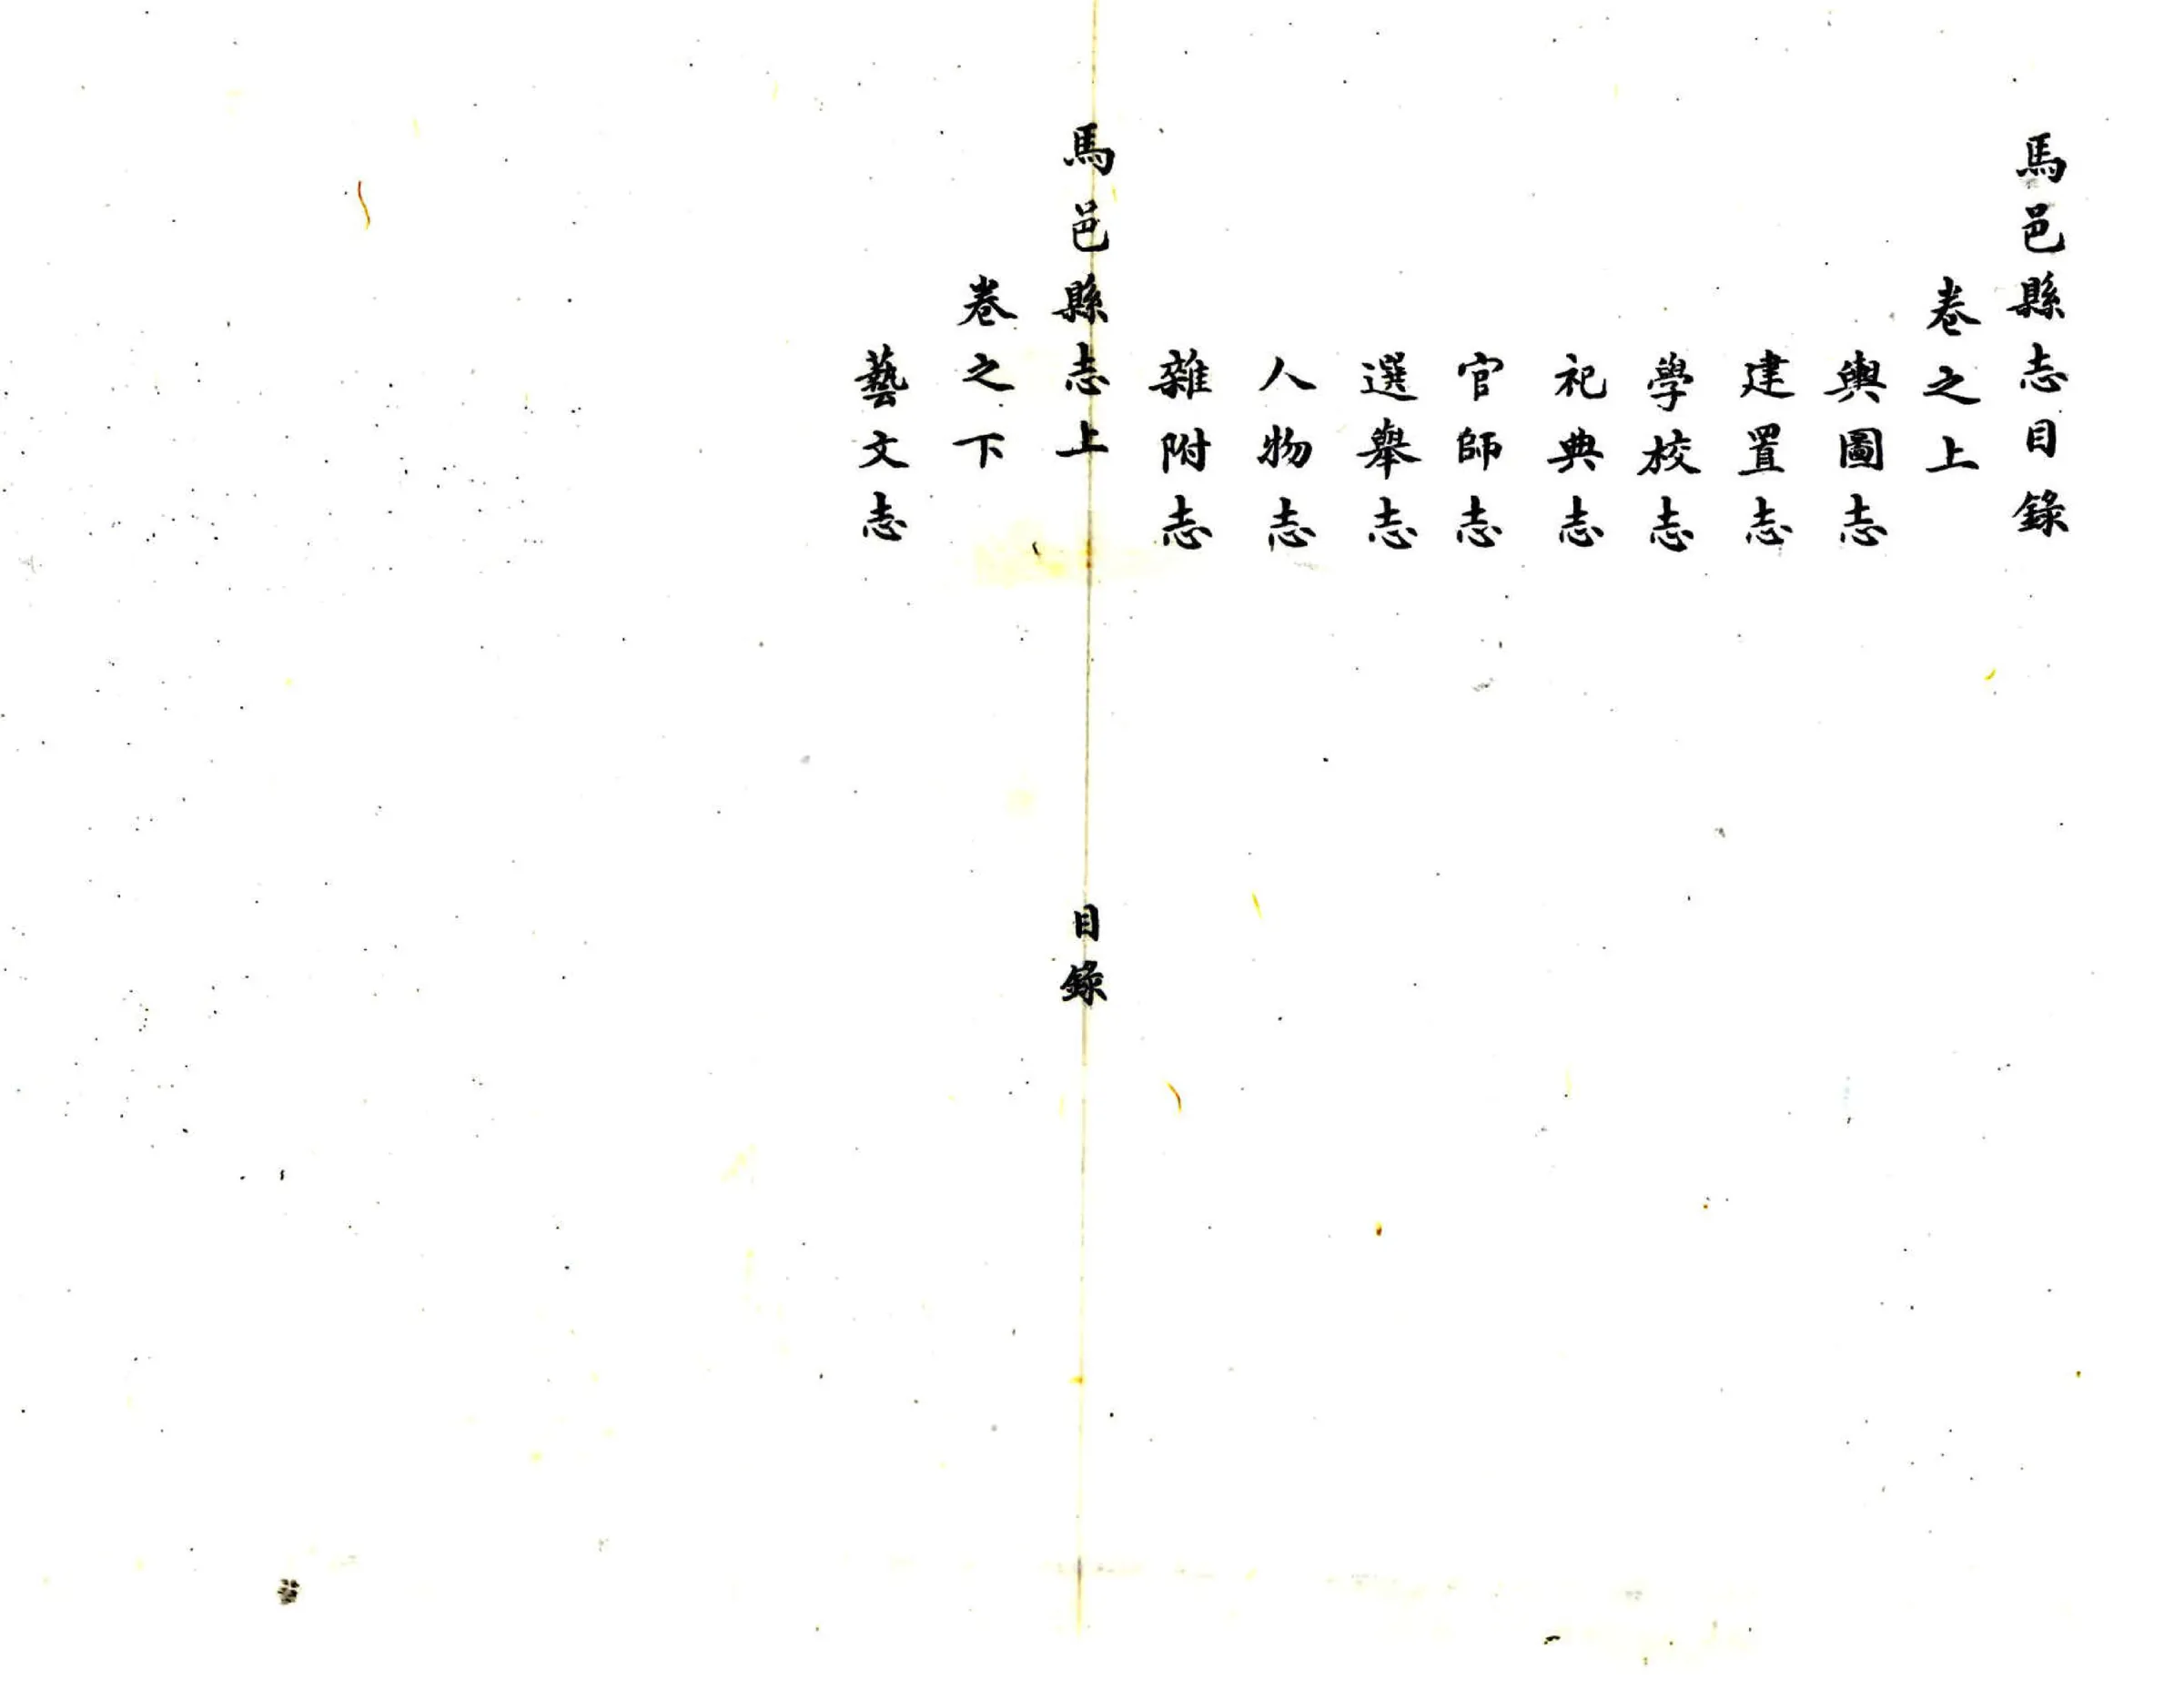 馬邑縣志目錄
卷之上
輿圖志
建置志
學校志
祀典志
官師志
選舉志
人物志
雜附志
馬邑縣志上
目錄
卷之下
藝文志